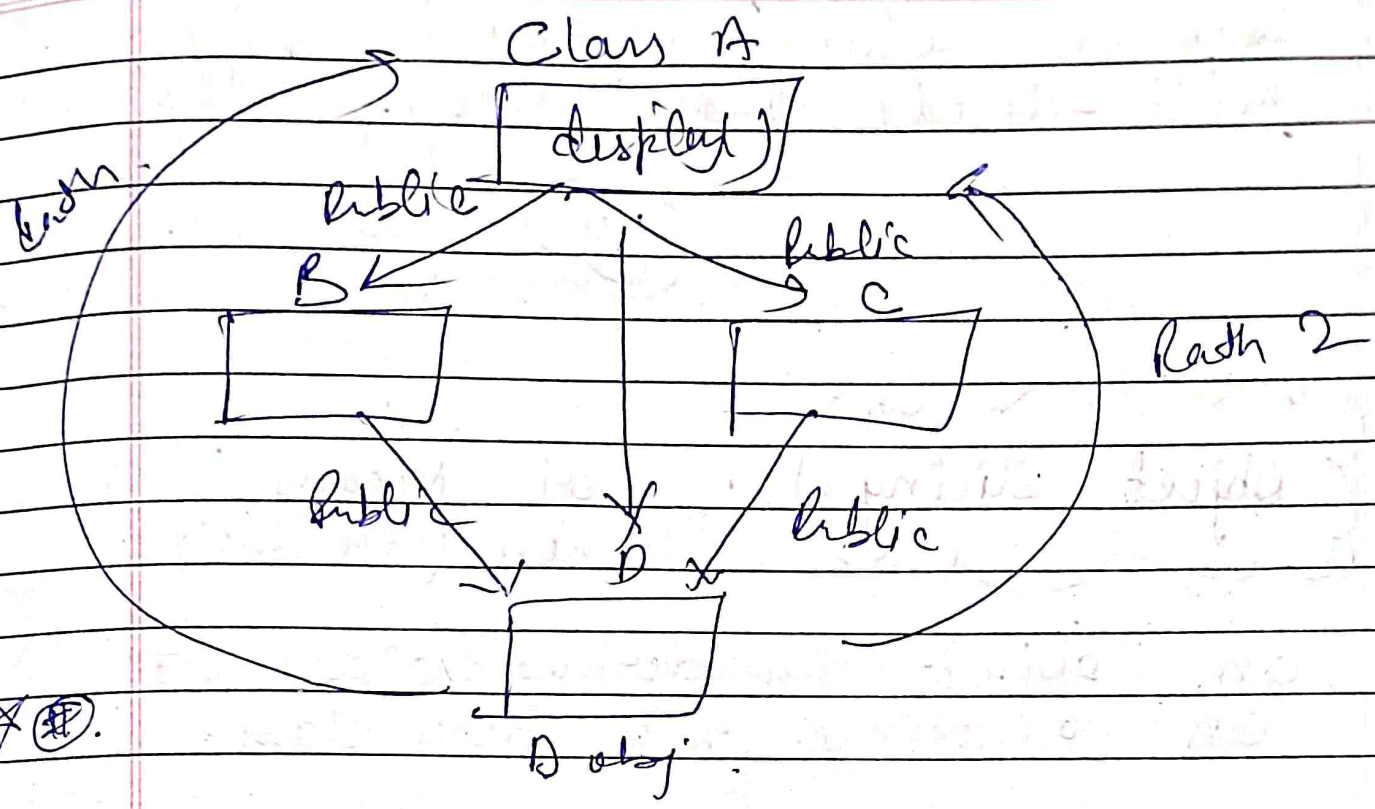 Class A
display()
Public
Public
B
C
Path 2
Public
Public
D
D obj.